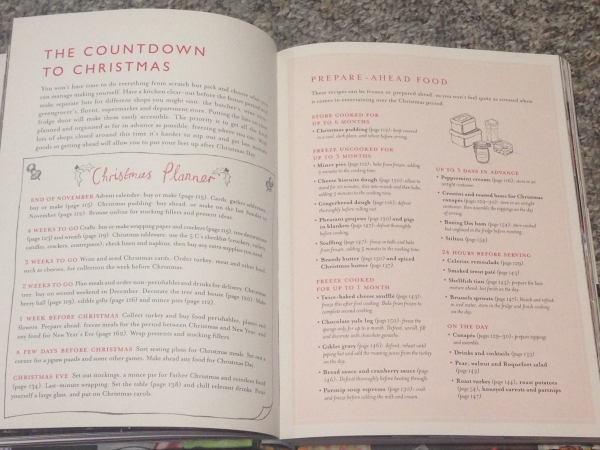 THE COUNTDOWN
TO CHRISTMAS
You won't have time to do everything from scratch but pick and choose what you
can manage making yourself. Have a kitchen clear-out before the festive period and
make separate lists for different shops you might visit: the butcher's, wine store,
greengrocer's, florist, supermarket and department store. Putting the lists on the
fridge door will make them easily accessible. The priority is to get all the food
planned and organised as far in advance as possible, freezing where you can. With
lots of shops closed around this time it's harder to nip out and get last-minute
goods so getting ahead will allow you to put your feet up after Christmas Day.
Christmas Planner
END OF NOVEMBER Advent calendar: buy or make (page 115). Cards: gather addresses,
buy or make (page 115). Christmas pudding: buy ahead, or make on the last Sunday in
November (page 112). Browse online for stocking fillers and present ideas.
4 WEEKS TO GO Crafts: buy or make wrapping paper and crackers (page 115), tree decorations
(page 123) and wreath (page 119). Christmas tableware: use the 5 C's checklist (crockery, cutlery,
candles, crackers, centrepiece), check linen and napkins, then buy any extra supplies you need.
3 WEEKS TO GO Write and send Christmas cards. Order turkey, meat and other food,
such as cheeses, for collection the week before Christmas.
2 WEEKS TO GO Plan meals and order non-perishables and drinks for delivery. Christmas
tree: buy on second weekend in December. Decorate the tree and house (page 120). Make
berry ball (page 119), edible gifts (page 116) and mince pies (page 112).
1 WEEK BEFORE CHRISTMAS Collect turkey and buy food perishables, plants and
flowers. Prepare ahead: freeze meals for the period between Christmas and New Year, and
any food for New Year's Eve (page 162). Wrap presents and stocking fillers.
A FEW DAYS BEFORE CHRISTMAS Sort seating plans for Christmas meals. Set out a
corner for a jigsaw puzzle and some other games. Make ahead any food for Christmas Day.
CHRISTMAS EVE Set out stockings, a mince pie for Father Christmas and reindeer food
(page 134). Last-minute wrapping. Set the table (page 138) and chill relevant drinks. Pour
yourself a large glass, and put on Christmas carols.
PREPARE-AHEAD FOOD
These recipes can be frozen or prepared ahead, so you won't feel quite as stressed when
it comes to entertaining over the Christmas period.
STORE COOKED FOR
UP TO 6 MONTHS
• Christmas pudding (page 112): keep covered
in a cool, dark place, and reheat before serving.
FREEZE UNCOOKED FOR
UP TO 3 MONTHS
• Mince pies (page 112): bake from frozen, adding
5 minutes to the cooking time.
• Cheese biscuits dough (page 130): allow to
stand for 20 minutes, slice into rounds and then bake,
adding 5 minutes to the cooking time.
• Gingerbread dough (page 116): defrost
thoroughly before rolling out.
• Pheasant goujons (page 130) and pigs
in blankets (page 147): defrost thoroughly
before cooking.
• Stuffing (page 147): freeze in balls and bake
from frozen, adding 5 minutes to the cooking time.
• Brandy butter (page 150) and spiced
Christmas butter (page 137).
FREEZE COOKED
FOR UP TO 1 MONTH
• Twice-baked cheese soufflé (page 143):
freeze the after first cooking. Bake from frozen to
complete second cooking.
• Chocolate yule log (page 150): freeze the
sponge only for up to a month. Defrost, unroll, fill
and decorate with chocolate ganache.
• Giblet gravy (page 146): defrost, reheat until
piping hot and add the roasting juices from the turkey
on the day.
• Bread sauce and cranberry sauce (page
146). Defrost thoroughly before heating through.
• Parsnip soup espresso (page 130): cook
and freeze before adding the milk and cream.
UP TO 5 DAYS IN ADVANCE
• Peppermint creams (page 116): store in an
airtight container.
• Crostini and toasted bases for Christmas
canapés (page 129–30): store in an airtight
container, then assemble the toppings on the day
of serving.
• Boxing Day ham (page 154): store cooked
but unglazed in the fridge before roasting.
• Stilton (page 154)
24 HOURS BEFORE SERVING
• Celeriac remoulade (page 129).
• Smoked trout pâté (page 143).
• Shellfish tian (page 143): prepare the base
mixture ahead, but finish on the day.
• Brussels sprouts (page 147): blanch and refresh
in iced water, store in the fridge and finish cooking
on the day.
ON THE DAY
• Canapés (page 129–30): prepare toppings
and assemble.
• Drinks and cocktails (page 133)
• Pear, walnut and Roquefort salad
(page 143)
• Roast turkey (page 144), roast potatoes
(page 54), honeyed carrots and parsnips
(page 147)